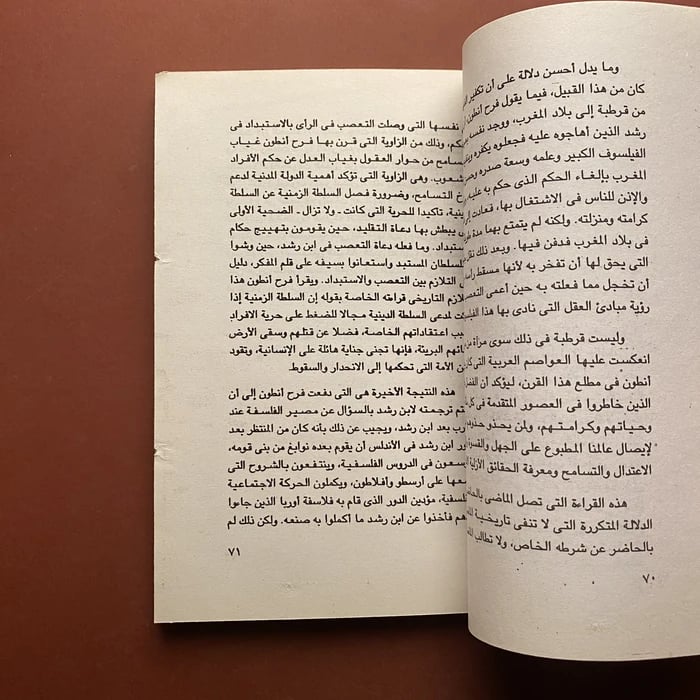 وما يدل أحسن دلالة على أن تكفير
كان من هذا القبيل، فيما يقول فرح أنطون،
من قرطبة إلى بلاد المغرب، ووجد نفسه
رشد الذين أهاجوه عليه فجعلوه يكفره
الفيلسوف الكبير وعلمه وسعة صدره
المغرب بإلغاء الحكم الذى حكم به عليه،
والإذن للناس فى الاشتغال بها، فعادت
كرامته ومنزلته. ولكنه لم يتمتع بهما مدة
فى بلاد المغرب فدفن فيها. وبعد ذلك
التى يحق لها أن تفخر به لأنها مسقط
أن تخجل مما فعلته به حين أعمى التعصب
رؤية مبادئ العقل التى نادى بها هذا
وليست قرطبة فى ذلك سوى مرآة
انعكست عليها العواصم العربية التى
أنطون فى مطلع هذا القرن، ليؤكد أن
الذين خاطروا فى العصور المتقدمة فى
وحياتهم وكرامتهم، ولن يحذو
لإيصال عالمنا المطبوع على الجهل
الاعتدال والتسامح ومعرفة الحقائق
هذه القراءة التى تصل الماضى
الدلالة المتكررة التى لا تنفى تاريخية
بالحاضر عن شرطه الخاص، ولا تطالب
٧٠
نفسها التى وصلت التعصب فى الرأى بالاستبداد فى
وذلك من الزاوية التى قرن بها فرح أنطون غياب
من حوار العقول بغياب العدل عن حكم الأفراد
وهى الزاوية التى تؤكد أهمية الدولة المدنية لدعم
التسامح، وضرورة فصل السلطة الزمنية عن السلطة
تأكيدا للحرية التى كانت ـ ولا تزال ـ الضحية الأولى
يبطش بها دعاة التقليد، حين يقومون بتهييج حكام
وما فعله دعاة التعصب فى ابن رشد، حين وشوا
المستبد واستعانوا بسيفه على قلم المفكر، دليل
التلازم بين التعصب والاستبداد. ويقرأ فرح أنطون هذا
التاريخى قراءته الخاصة بقوله إن السلطة الزمنية إذا
لمدعى السلطة الدينية مجالا للضغط على حرية الافراد
اعتقاداتهم الخاصة، فضلا عن قتلهم وسقى الأرض
البريئة، فإنها تجنى جناية هائلة على الإنسانية، وتقود
الأمة التى تحكمها إلى الانحدار والسقوط.
هذه النتيجة الأخيرة هى التى دفعت فرح أنطون إلى أن
ترجمته لابن رشد بالسؤال عن مصير الفلسفة عند
بعد ابن رشد، ويجيب عن ذلك بأنه كان من المنتظر بعد
ابن رشد فى الأندلس أن يقوم بعده نوابغ من بنى قومه،
فى الدروس الفلسفية، وينتفعون بالشروح التى
على أرسطو وأفلاطون، ويكملون الحركة الاجتماعية
مؤدين الدور الذى قام به فلاسفة أوربا الذين جاءوا
فأخذوا عن ابن رشد ما أكملوا به صنعه. ولكن ذلك لم
٧١